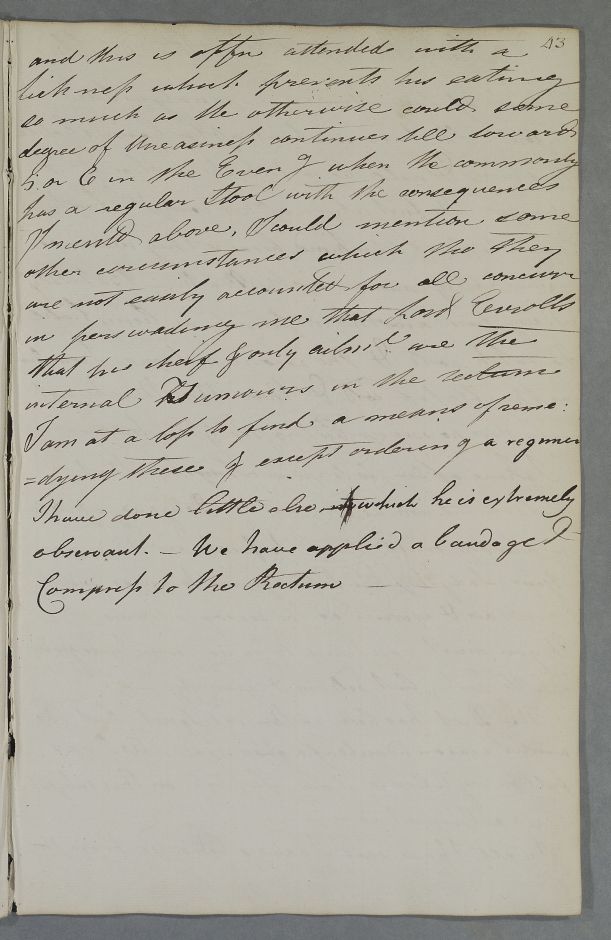 43
and this is often attended with a
Sickness which prevents his eating
so much as He otherwise could some
degree of Uneasiness continues till towards
5 or 6 in the Even.g when He commonly
has a regular Stool with the consequences
I mentd above, I could mention some
other circumstances which tho They
are not easily accounted for all concurr
in perswading me that Lord Errolls
that his cheif & only ailmts are The
internal Tumours in the rectum
I am at a loss to find a means of reme:
=dying these & except ordering a regimen
I have done little else in which he is extremely
observant. — We have applied a bandage &
Compress to the Rectum —